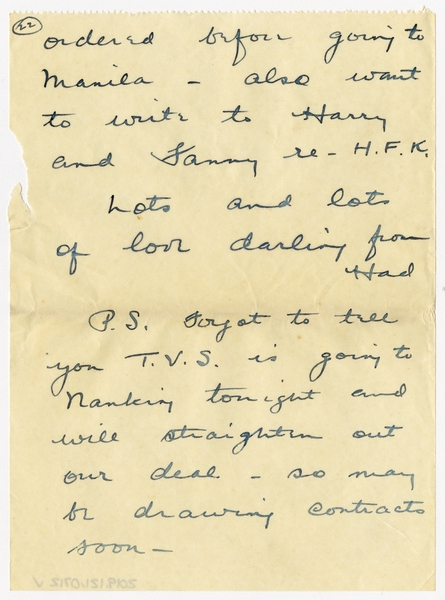 22
ordered before going to
Manila – also want
to write to Harry
and Fanny re – H.F.K.
Lots and lots
of love darling from
Had
P.S. Forgot to tell
you T.V.S. is going to
Nanking tonight and
will straighten out
our deal – so may
be drawing contracts
soon –